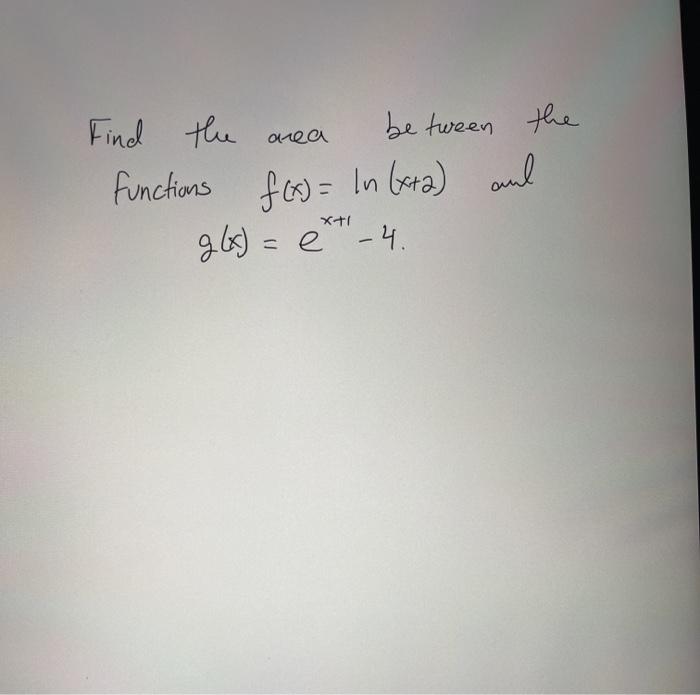 Find the area between the
functions f(x) = ln(x+2) and
g(x) = e^{x+1} - 4.